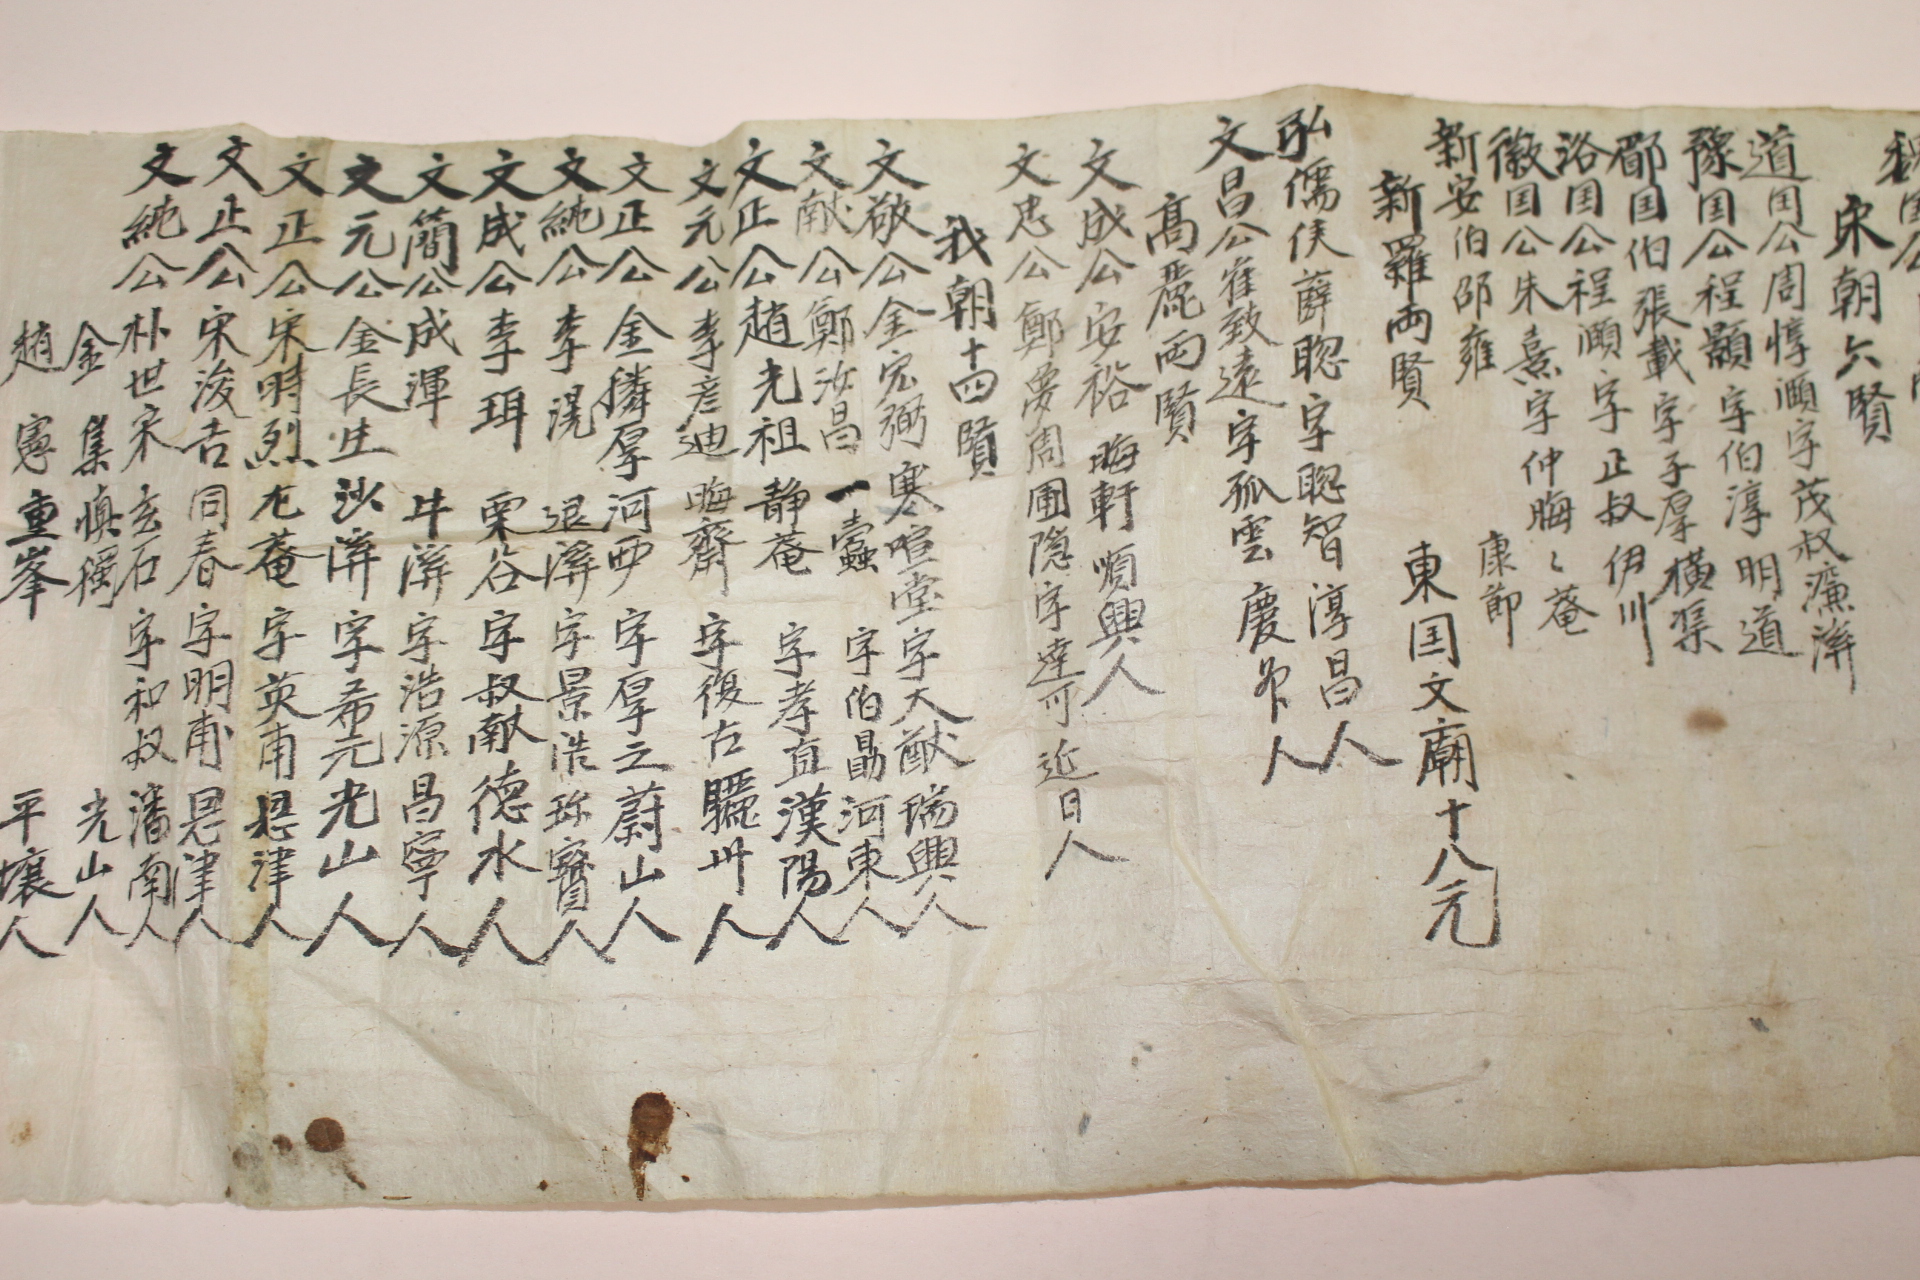 国公
宋朝六賢
道国公周惇頤字茂叔濂溪
豫国公程顥字伯淳明道
郿国伯張載字子厚橫渠
洛国公程頤字正叔伊川
徽国公朱熹字仲晦晦菴
新安伯邵雍康節
東国文廟十八元
新羅兩賢
弘儒侯薛聡字聡智淳昌人
文昌公崔致遠字孤雲慶州人
高麗兩賢
文成公安裕晦軒順興人
文忠公鄭夢周圃隐字達可延日人
我朝十四賢
文敬公金宏弼寒喧堂字大猷瑞興人
文献公鄭汝昌一蠹字伯勗河東人
文正公趙光祖静菴字孝直漢陽人
文元公李彦迪晦齋字復古驪州人
文正公金麟厚河西字厚之蔚山人
文純公李滉退溪字景浩珎寶人
文成公李珥栗谷字叔献德水人
文簡公成渾牛溪字浩源昌寧人
文元公金長生沙溪字希元光山人
文正公宋時烈尤菴字英甫恩津人
文正公宋浚吉同春字明甫恩津人
文純公朴世采玄石字和叔潘南人
金集愼獨光山人
趙憲重峯平壤人